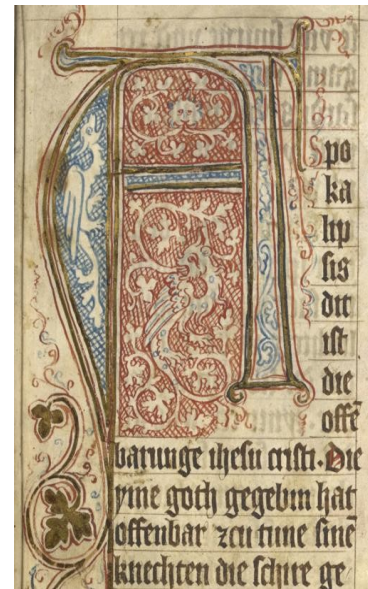 A
po
ka
lip
sis
dit
ist
die
offē
barunge ihesu cristi. Die
yme goth gegebin hat
offenbar zcu tune sinē
knechten die schire ge